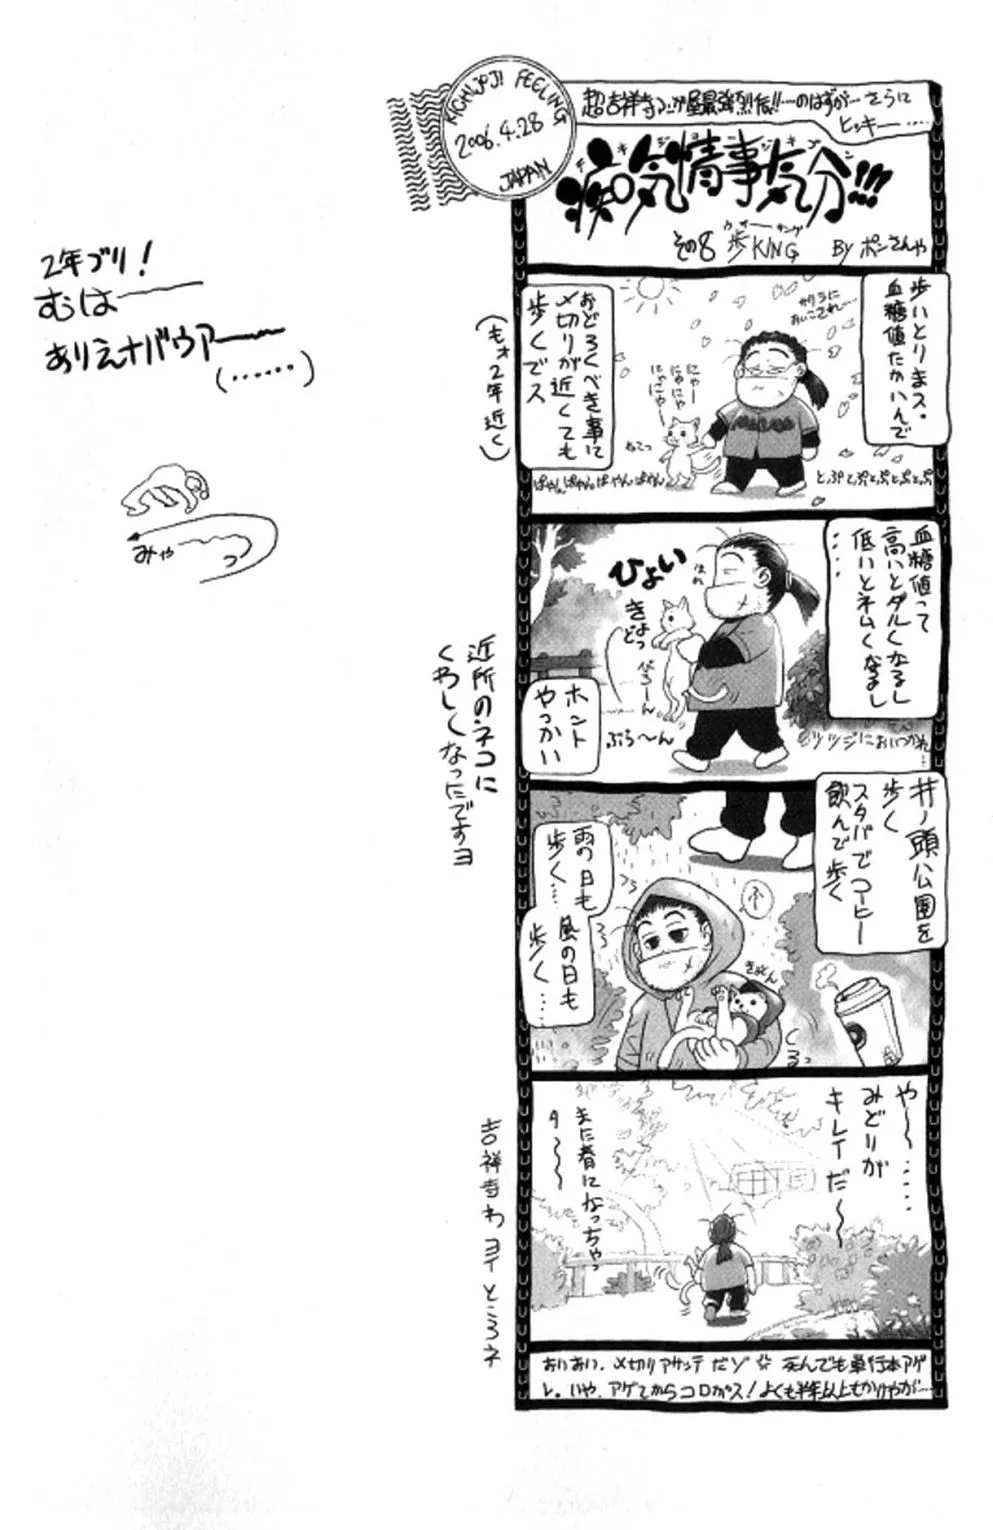 KICHIJOJI FEELING
2006.4.28
JAPAN
のはずが…さらに
ヒッキー……
病気情事気分!!!
その8 歩KING
ウォーキング
By ポンさんや
歩いとりまス。
血糖値たかいんで
サクラに
おいこされ…
おどろくべき事に
〆切りが近くても
歩くでス
(もォ2年近く)
にゃー
にゃにゃ
にゃにゃー
ねこっ
ぱやんぱやんぱやんぱやん
とぷとぷとぷとぷとぷ
血糖値って
高いとダルくなるし
低いとネムくなるし
……
はれ
ひょい
きょどっ
ぶら〜ん
ツツジにおいつかれ…
ホント
やっかい
近所のネコに
くわしくなったですヨ
井ノ頭公園を
歩く
スタバでコーヒー
飲んで歩く
雨の日も
歩く…
風の日も
歩く……
ふー
きょとん
や〜……
みどりが
キレイだ〜
また春になっちゃっ
タ〜〜
吉祥寺わヨイところネ
おいおい、〆切りアサッテだゾ 死んでも単行本アゲ
レ。いや、アゲてからコロがス!よくも半年以上も
2年ブリ!
むはー
ありえナバウアー
(……)
みゃ
っ